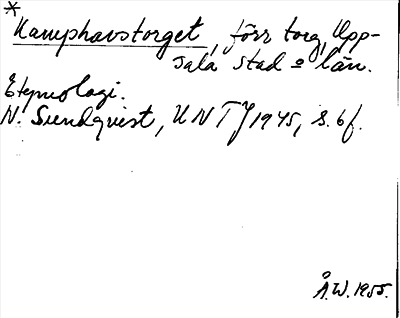 *
Kamphavstorget, förr torg, Upp-
sala stad o län.
Etymologi.
N. Sundqvist, UNT J 1945, s. 6f.
Å.W. 1955.